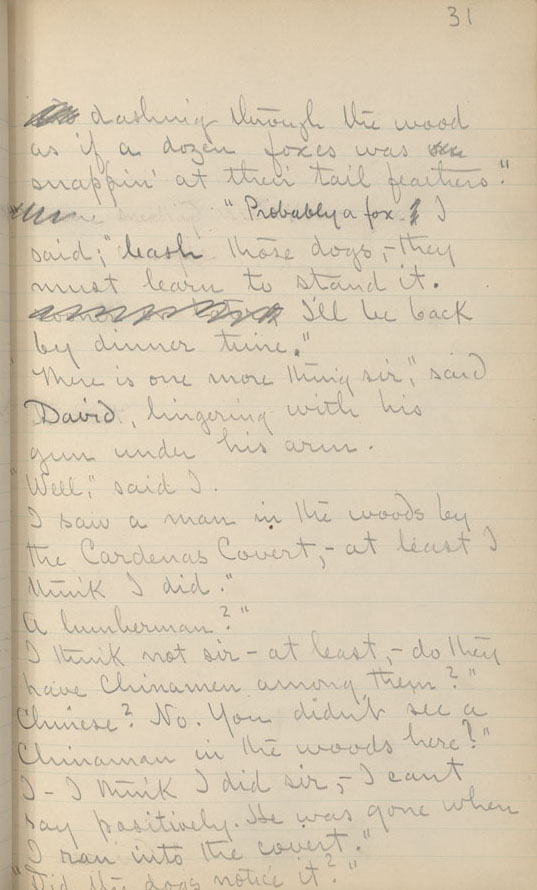 31
dashing through the wood
as if a dozen foxes was
snappin' at their tail feathers."
"Probably a fox." I
said; "leash those dogs,-they
must learn to stand it.
I'll be back
by dinner time."
"There is one more thing sir," said
David, lingering with his
gun under his arm.
"Well," said I.
I saw a man in the woods by
the Cardenas Covert,- at least I
think I did."
A lumberman?"
I think not sir - at least,- do they
have Chinamen among them?"
Chinese? No. You didn't see a
Chinaman in the woods here?"
I - I think I did sir,- I cant
say positively. He was gone when
I ran into the covert."
"Did the dogs notice it?"